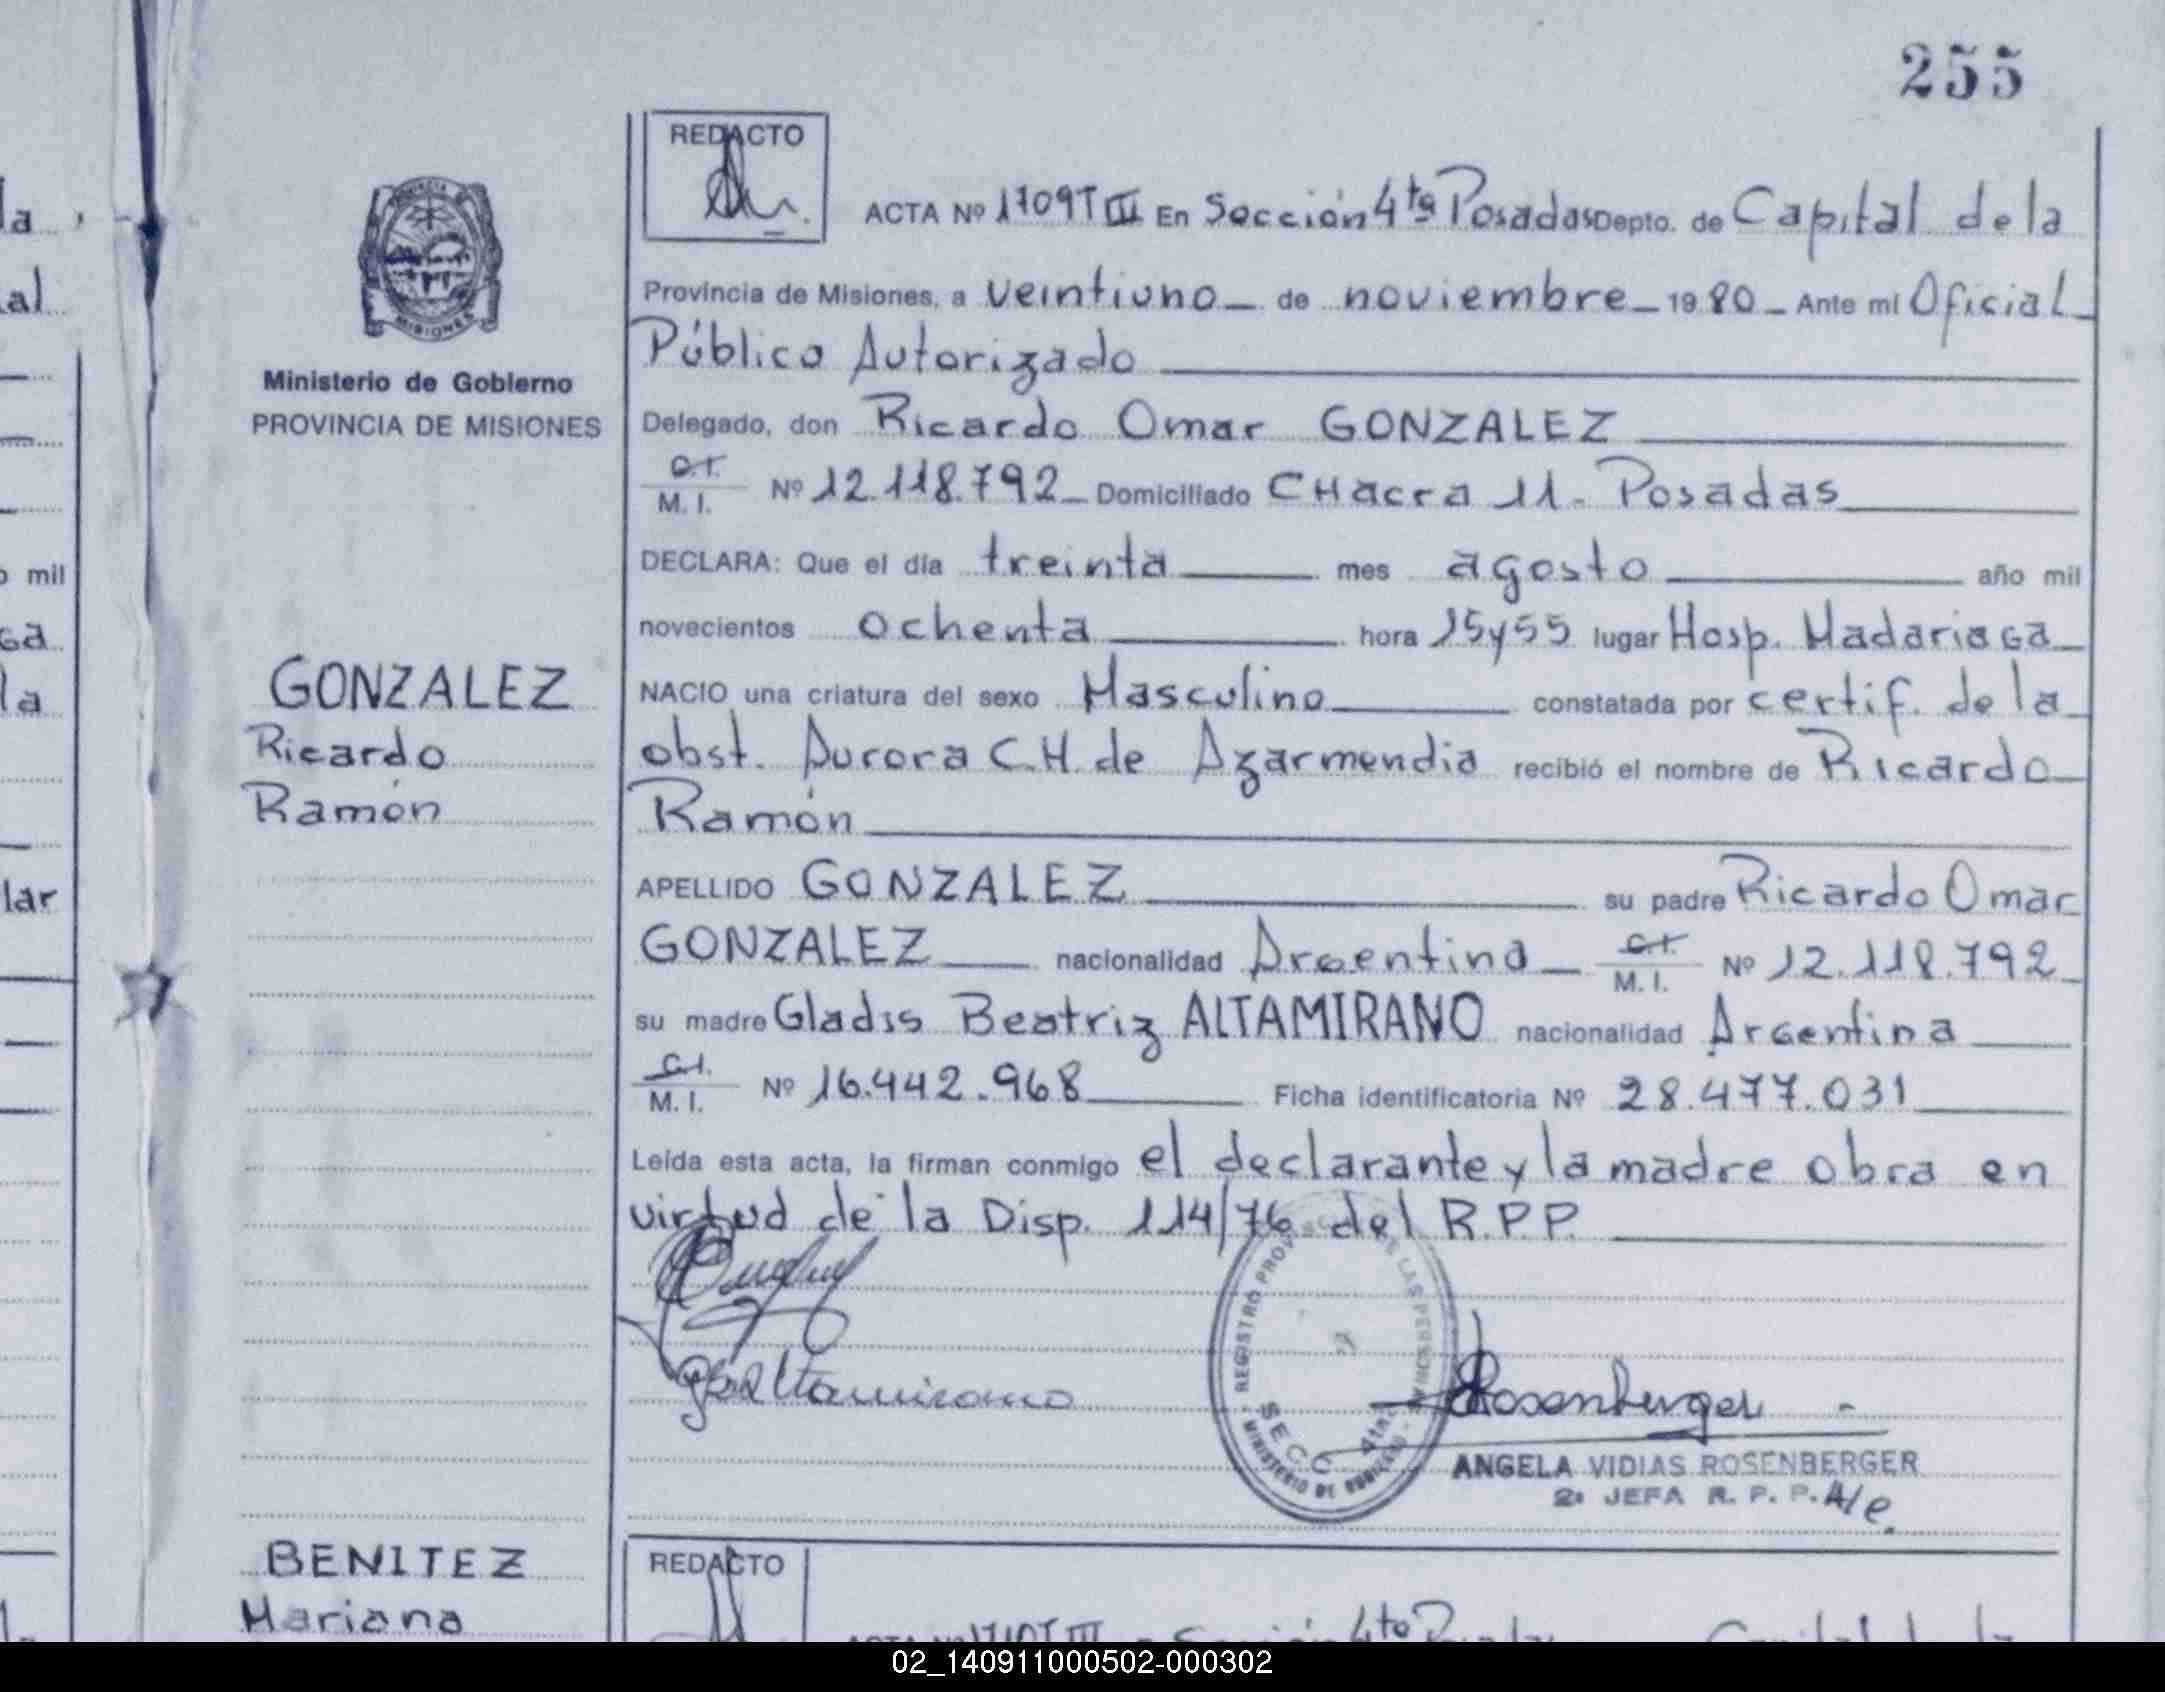 255
REDACTO
ACTA Nº 1709 T III En Sección 4ta Posadas Depto. de Capital de la
Provincia de Misiones, a veintiuno de noviembre 1980 Ante mi Oficial
Público Autorizado
Ministerio de Gobierno
PROVINCIA DE MISIONES
MISIONES
Delegado, don Ricardo Omar GONZALEZ
C.I.
M. I. Nº 12.118.792 Domiciliado CHacra 11 - Posadas
DECLARA: Que el día treinta mes agosto año mil
novecientos ochenta hora 15 y 55 lugar Hosp. Madariaga
GONZALEZ
Ricardo
Ramón
NACIO una criatura del sexo Masculino constatada por certif. de la
obst. Aurora C.H. de Azarmendia recibió el nombre de Ricardo
Ramón
APELLIDO GONZALEZ su padre Ricardo Omar
GONZALEZ nacionalidad Argentina C.I.
M. I. Nº 12.118.792
su madre Gladis Beatriz ALTAMIRANO nacionalidad Argentina
C.I.
M. I. Nº 16.442.968 Ficha identificatoria Nº 28.477.031
Leída esta acta, la firman conmigo el declarante y la madre obra en
virtud de la Disp. 114/76 del R.P.P.
REGISTRO DE LAS PERSONAS
MINISTERIO DE GOBIERNO
SECC. 4ta
Altamirano
Rosenberger
ANGELA VIDIAS ROSENBERGER
2ª JEFA R. P. P. A/c.
BENITEZ
Mariana
REDACTO
ACTA Nº 1710 T III En Sección 4ta Posadas Capital de la
la
al
mil
ga
la
lar
02_140911000502-000302